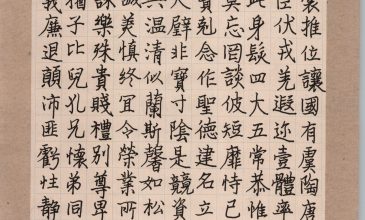 裳推位讓國有虞陶唐
臣伏戎羌遐迩壹體率
此身髮四大五常恭惟
莫忘罔談彼短靡恃己
賢剋念作聖德建名立
尺璧非寶寸陰是競資
興溫清似蘭斯馨如松
誠美慎終宜令榮業所
詠樂殊貴賤禮別尊卑
猶子比兒孔兄懷弟同
義廉退顛沛匪虧性靜